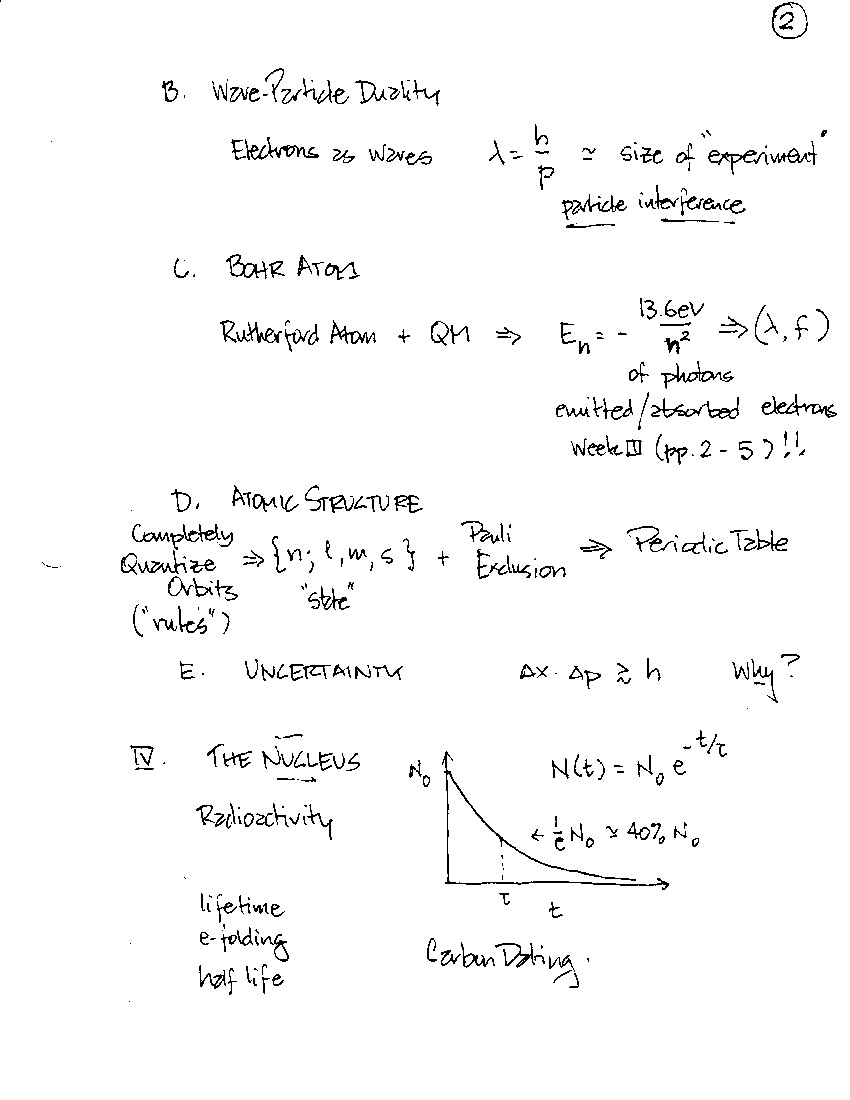 2
B. Wave-Particle Duality
Electrons as Waves λ = h/p ≃ size of "experiment"
particle interference
C. BOHR ATOM
Rutherford Atom + QM ⇒ En = - 13.6eV/n² ⇒ (λ, f)
of photons
emitted/absorbed electrons
Week III (pp. 2 - 5)!!
D. ATOMIC STRUCTURE
Completely Quantize Orbits ("rules") ⇒ {n; l, m, s} "state" + Pauli Exclusion ⇒ Periodic Table
E. UNCERTAINTY Δx · Δp ≳ h Why?
IV. THE NUCLEUS
Radioactivity
N₀ N(t) = N₀ e^-t/τ
← 1/e N₀ ≃ 40% N₀
τ t
lifetime
e-folding
half life
Carbon Dating.